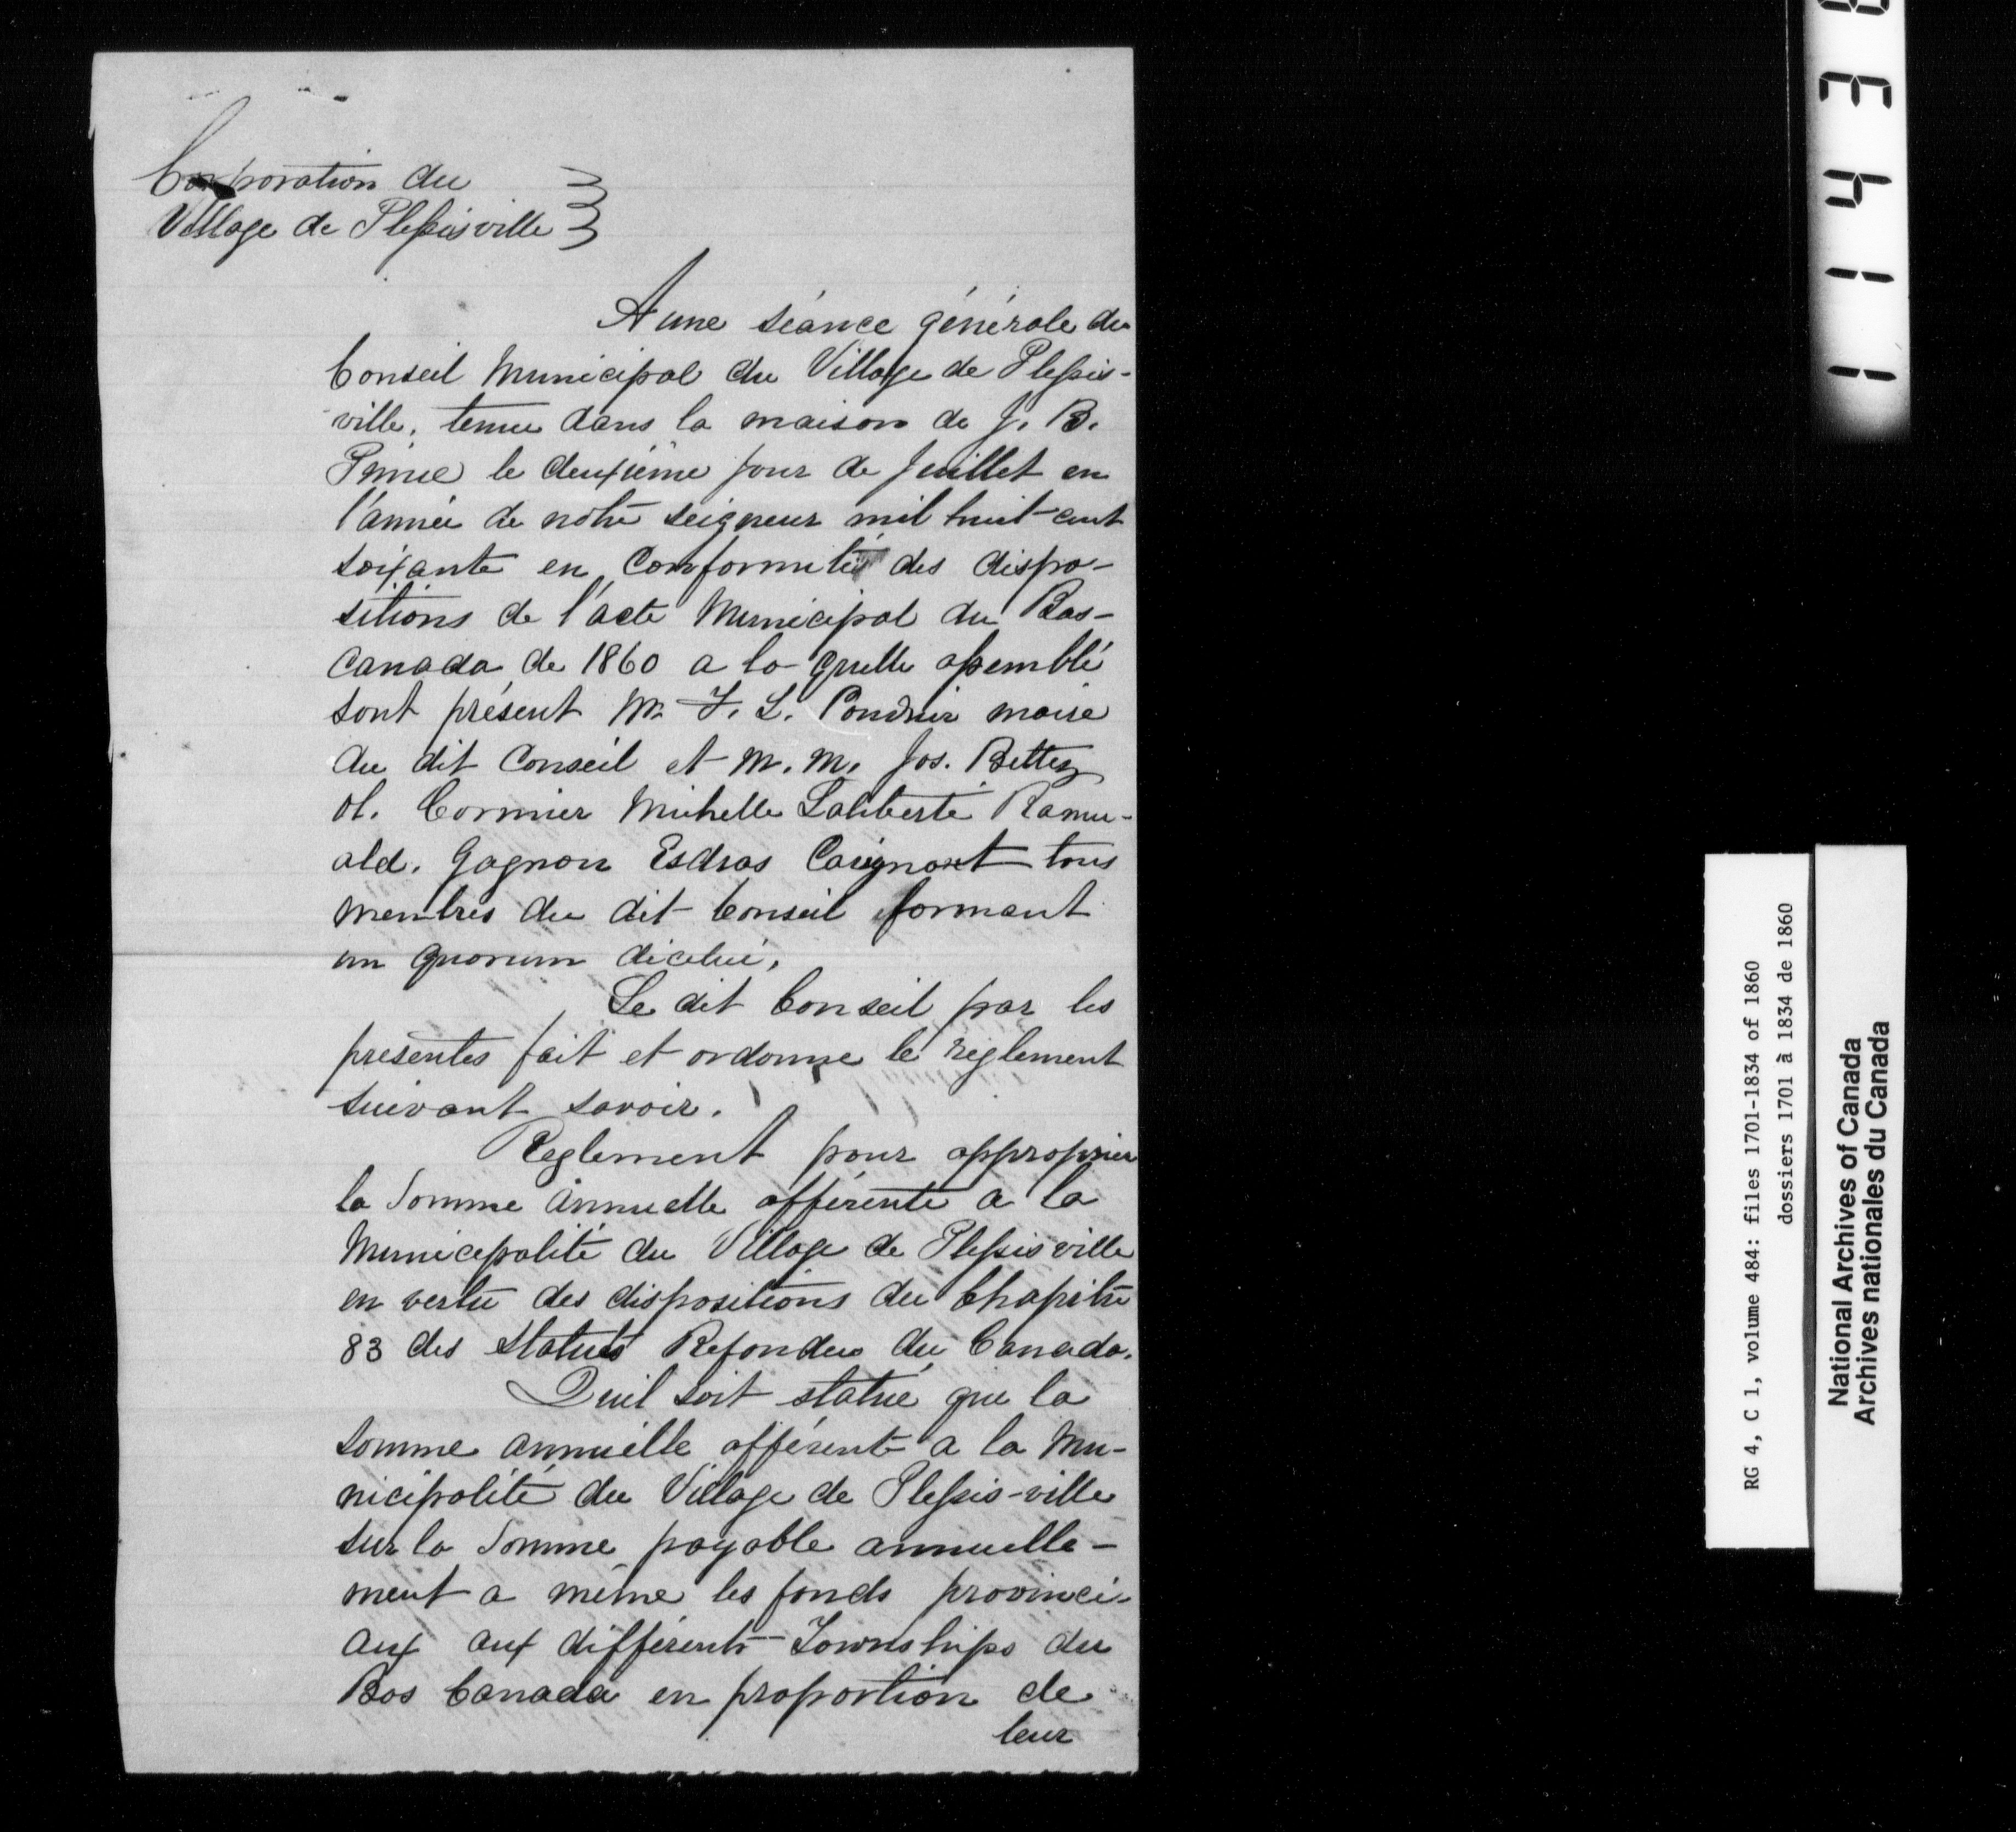 Corporation du
Village de Plessisville
A une séance générale du
Conseil Municipal du Village de Plessis-
ville, tenue dans la maison de J. B.
Prince le deuxième jour de Juillet en
l'année de notre seigneur mil huit-cent
soixante en Conformité des dispo-
sitions de l'acte Municipal du Bas-
Canada de 1860 a la-quelle assemblé
sont présent Mr. F. L. Poudrier maire
du dit Conseil et M. M. Jos. Bettez
Ol. Cormier Michelle Laliberté Ramu-
ald. Gagnon Esdras Carignant tous
membres du dit Conseil formant
un quorum dicelui,
Le dit Conseil par les
présentes fait et ordonne le règlement
suivant savoir.
Reglement pour approprier
la Somme annuelle afférente a la
Municipalité du Village de Plessisville
en vertu des dispositions du Chapitre
83 des Statuts Refondus du Canada.
Quil soit statué que la
somme annuelle afférente a la Mu-
nicipalité du Village de Plessis-ville
sur la Somme payable annuelle-
ment a même les fonds provinci-
aux aux différents Townships du
Bas Canada en proportion de
leur
1 1 4 3
RG 4, C 1, volume 484: files 1701-1834 of 1860
dossiers 1701 à 1834 de 1860
National Archives of Canada
Archives nationales du Canada